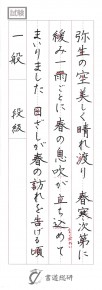 試験
弥生の空美しく晴れ渡り 春寒次第に
緩み一雨ごとに春の息吹が立ち込めて
まいりました 日ざしが春の訪れを告げる頃
一般 段級
書道総研